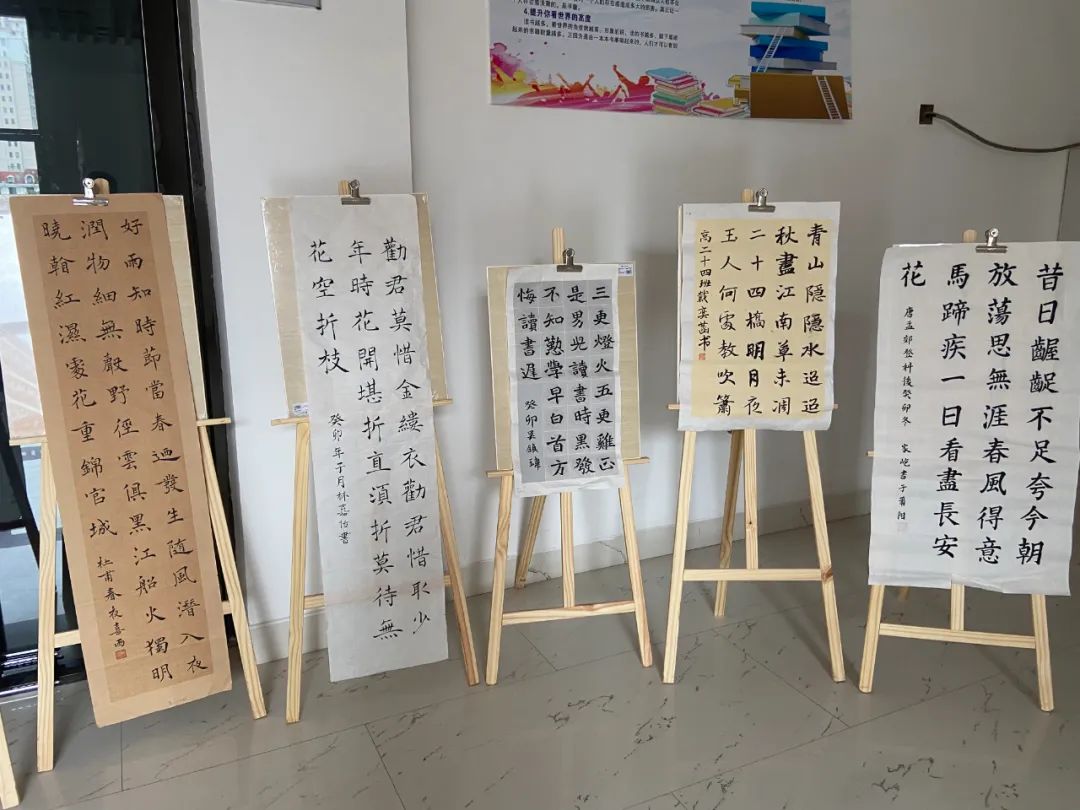 4.提升你看世界的高度
好雨知時節當春迺發生隨風潛入夜
潤物細無聲野徑雲俱黑江船火獨明
曉看紅濕處花重錦官城
杜甫春夜喜雨
勸君莫惜金縷衣勸君惜取少
年時花開堪折直須折莫待無
花空折枝
癸卯年子月林嘉怡書
三更燈火五更雞正
是男兒讀書時黑發
不知勤學早白首方
悔讀書遲
癸卯吴鎮瑋
青山隱隱水迢迢
秋盡江南草未凋
二十四橋明月夜
玉人何處教吹簫
高二十四班戴奕菡书
昔日齷齪不足夸今朝
放蕩思無涯春風得意
馬蹄疾一日看盡長安
花
唐孟郊登科後癸卯冬